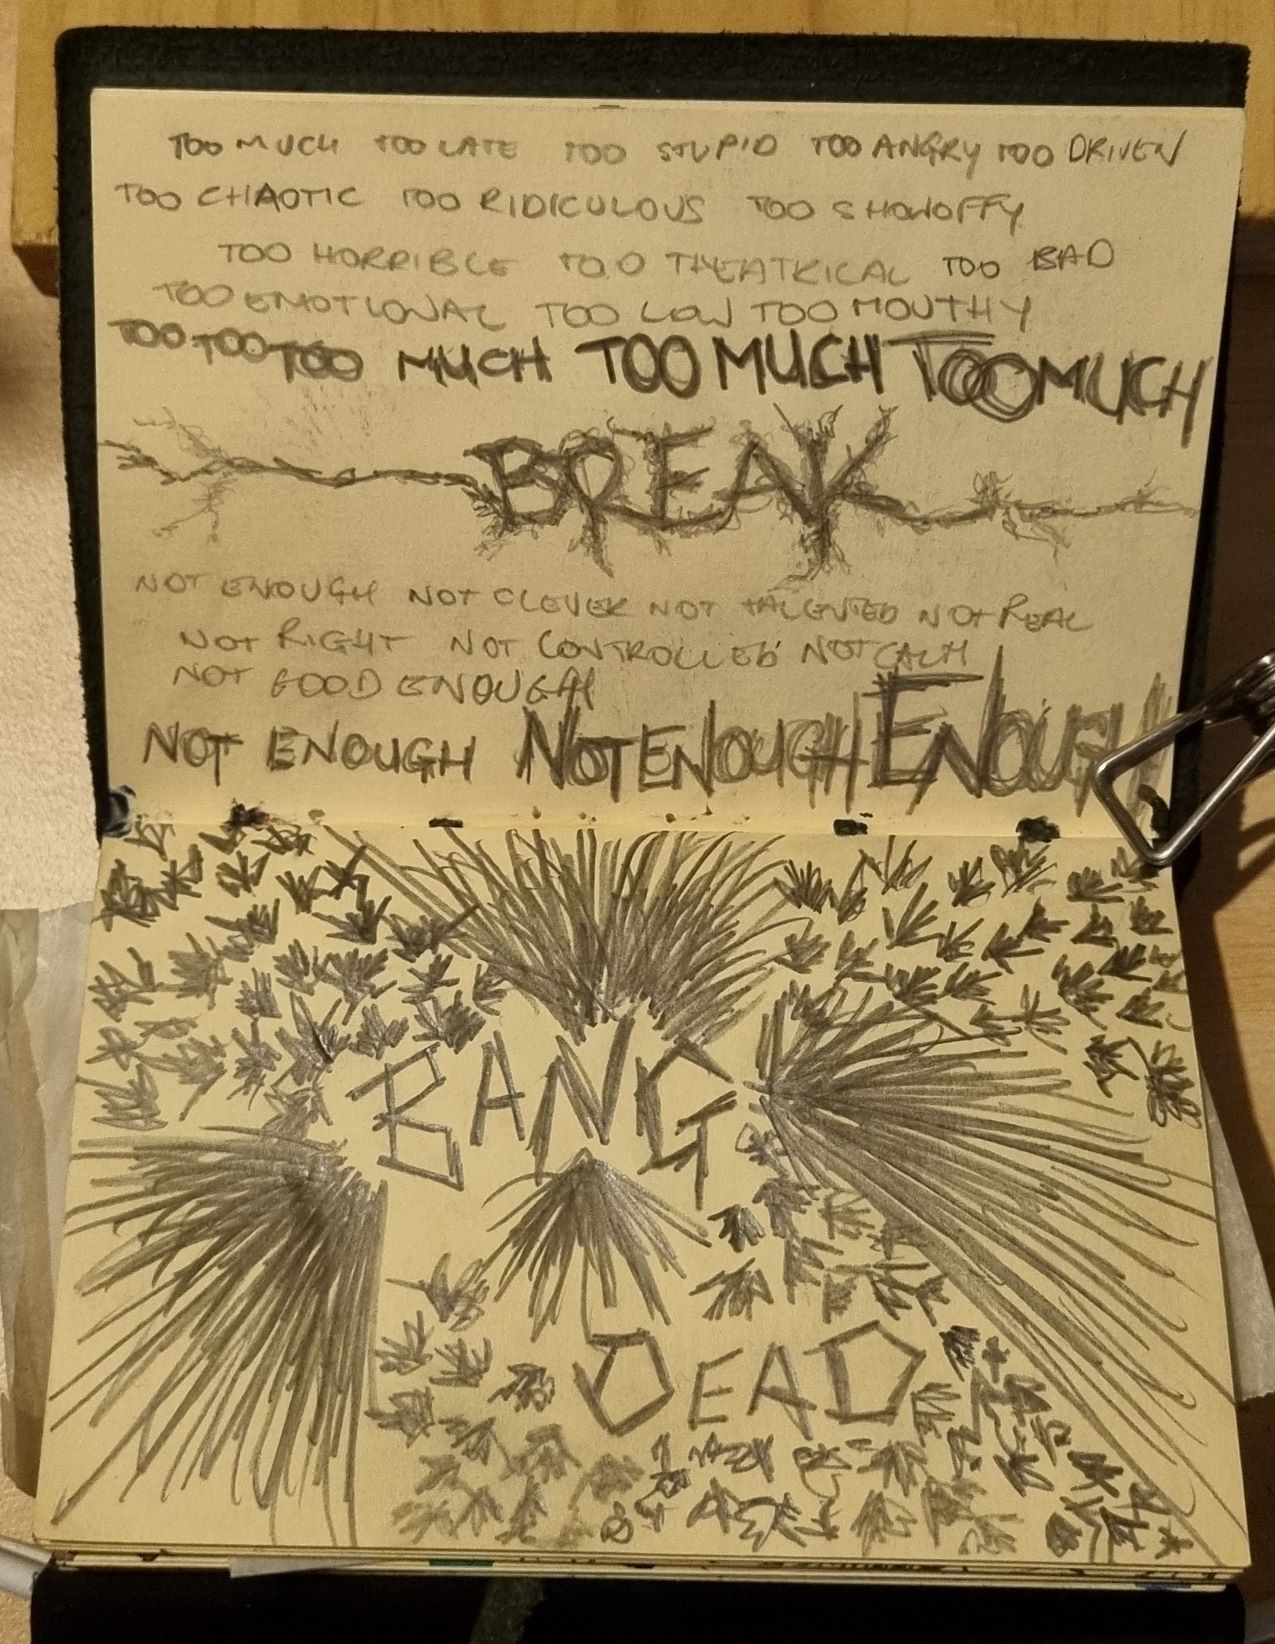 TOO MUCH TOO LATE TOO STUPID TOO ANGRY TOO DRIVEN
TOO CHAOTIC TOO RIDICULOUS TOO SHOWOFFY
TOO HORRIBLE TOO THEATRICAL TOO BAD
TOO EMOTIONAL TOO LOW TOO MOUTHY
TOO TOO TOO MUCH TOO MUCH TOO MUCH
BREAK
NOT ENOUGH NOT CLEVER NOT TALENTED NOT REAL
NOT RIGHT NOT CONTROLLED NOT CALM
NOT GOOD ENOUGH
NOT ENOUGH NOT ENOUGH ENOUGH
BANG
DEAD